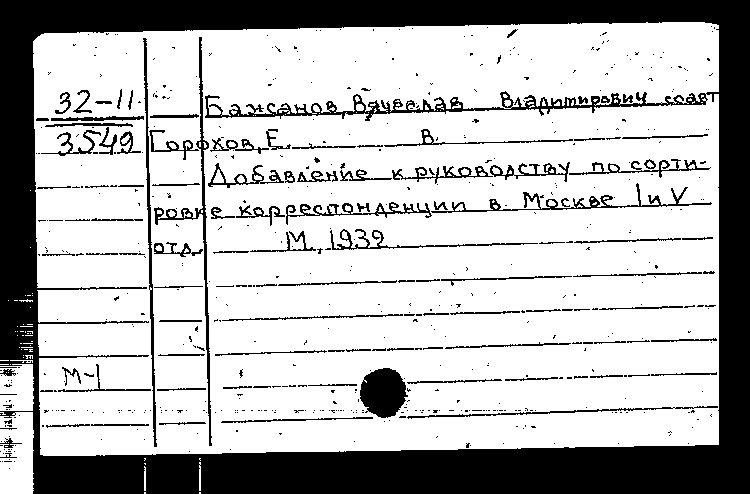 32-11 Бажанов, Вячеслав Владимирович соавт
3549 Горохов, Е. В.
Добавление к руководству по сорти-
ровке корреспонденции в Москве I и V
отд. М., 1939
М-1